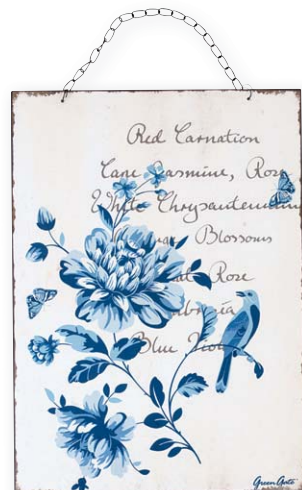 Red Carnation
Cape Jasmine, Rose
White Chrysantemum
Blossoms
Rose
Blue
GreenGate